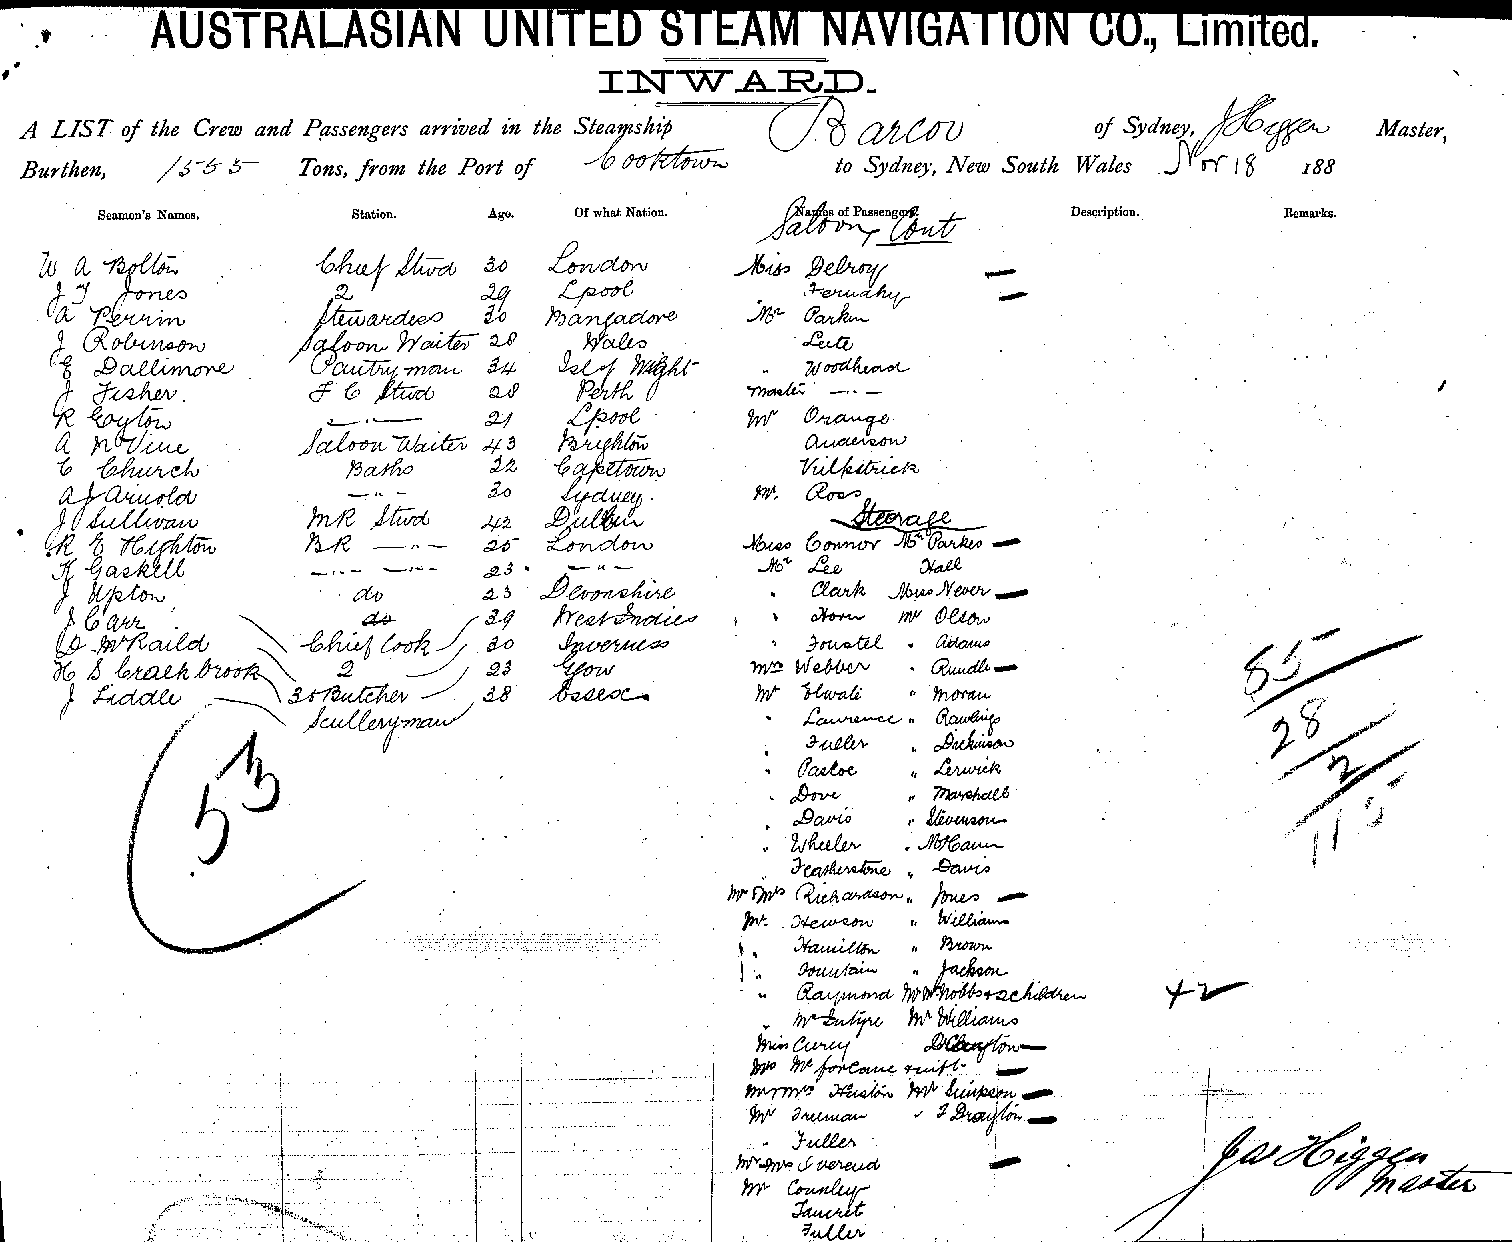 AUSTRALASIAN UNITED STEAM NAVIGATION CO., Limited.
INWARD.
A LIST of the Crew and Passengers arrived in the Steamship Barcoo of Sydney, J Higgen Master,
Burthen, 1555 Tons, from the Port of Cooktown to Sydney, New South Wales Nov 18 188
Seamen's Names. Station. Age. Of what Nation. Names of Passengers. Description. Remarks.
Saloon Cont
W A Bolton Chief Stwd 30 London Miss Delroy —
J T Jones 2 29 Lpool
A Perrin Stewardess 30 Bangadore Mr Parken
J Robinson Saloon Waiter 28 Wales Lute
E Dallimore Pantry man 34 Isl of Wight " Woodhead
J Fisher. F C Stwd 28 Perth Master — " —
R Coyton — " — 21 Lpool Mr Orange
A McVine Saloon Waiter 43 Brighton Anderson
C Church Baths 22 Capetown Kilpatrick
A J Arnold — " — 30 Sydney. Mr. Ross
J Sullivan MR Stwd 42 Dublin Steerage
R E Highton BR — " — 25 London Miss Connor Mr Parkes —
H Gaskell — " — — " — 23 — " — Mr Lee Hall
J Upton do 23 Devonshire " Clark Miss Never —
J Carr do 39 West Indies " Horn Mr Olson
D McRaild Chief Cook 30 Inverness " Foustel " Adams
H S Crackbrook 2 23 Glow Mrs Webber " Rundle —
J Liddle 3d Butcher 38 Essex Mr Elwali " Moran
Scullery man " Lawrence " Rawlings
" Fuller " Dickinson
" Pascoe " Lerwick
" Dove " Marshall
" Davis " Stevenson
" Wheeler " McCann
Featherstone " Davis
Mr & Mrs Richardson " Jones —
Mr. Hewson " Williams
" Hamilton " Brown
" Fountain " Jackson
" Raymond Mr Nobbs + 2 children +2
" McIntyre Mr Williams
Miss Curry D Clayton —
Mrs
Mr & Mrs Huston Mr Simpson —
Mr Freeman " F Drayton —
" Fuller
Mr & Mrs Overend —
Mr Counley
Faucret
Fuller
53
85
28
2
115
Jas Higgen
Master